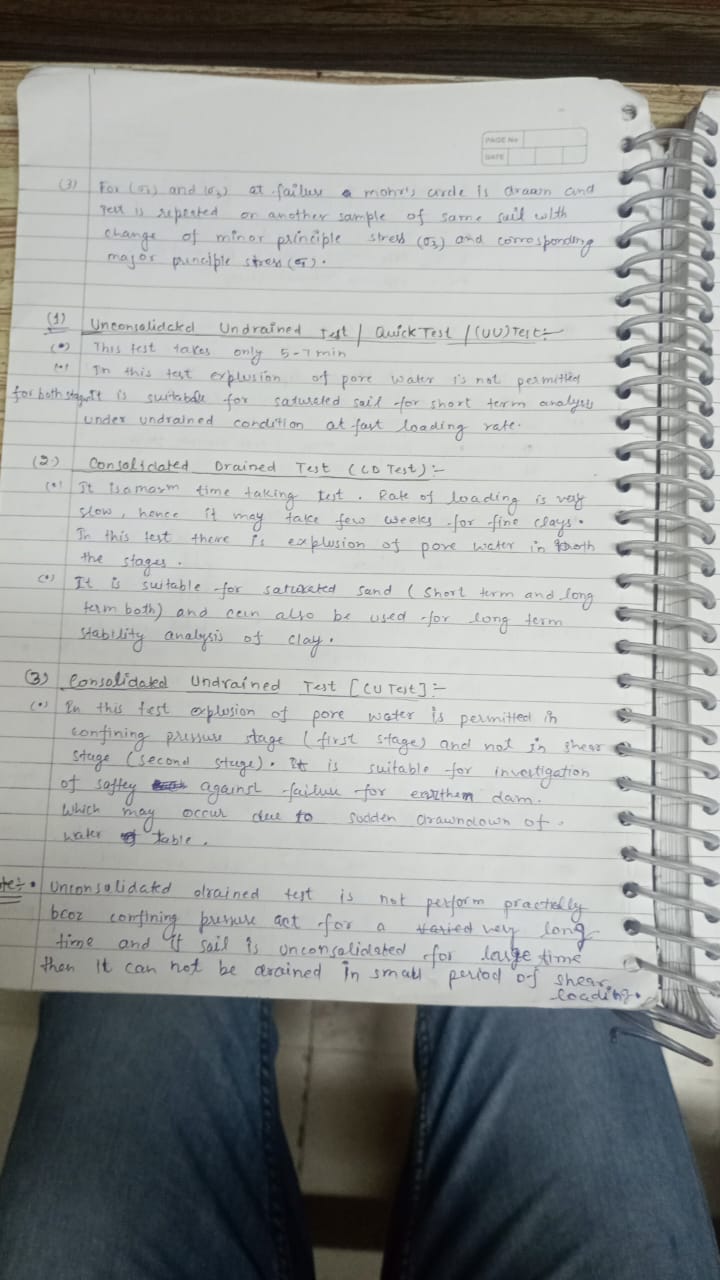 PAGE No
DATE
(3) For (σ1) and (σ3) at failure a mohr's circle is drawn and
Test is repeated on another sample of same soil with
change of minor principle stress (σ3) and corrosponding
major principle stress (σ1).
(1) Unconsolidated Undrained Test / Quick Test / (UU) Test:-
(•) This test takes only 5-7 min
(•) In this test explusion of pore water is not permitted
for both stages. It is suitable for saturated soil for short term analysis
under undrained condition at fast loading rate.
(2.) Consolidated Drained Test (CD Test) :-
(•) It is a time taking test. Rate of loading is very
slow, hence it may take few weeks for fine clays.
In this test there is explusion of pore water in both
the stages.
(•) It is suitable for saturated sand (short term and long
term both) and can also be used for long term
stability analysis of clay.
(3) Consolidated Undrained Test [CU Test] :-
(•) In this test explusion of pore water is permitted in
confining pressure stage (first stage) and not in shear
stage (second stage). It is suitable for investigation
of saftey against failure for earthen dam.
which may occur due to sudden drawndown of.
water table.
Note:- • Unconsolidated drained test is not perform practically
bcoz confining pressure act for a varied very long
time and if soil is unconsolidated for large time
then it can not be drained in small period of shear
loading.